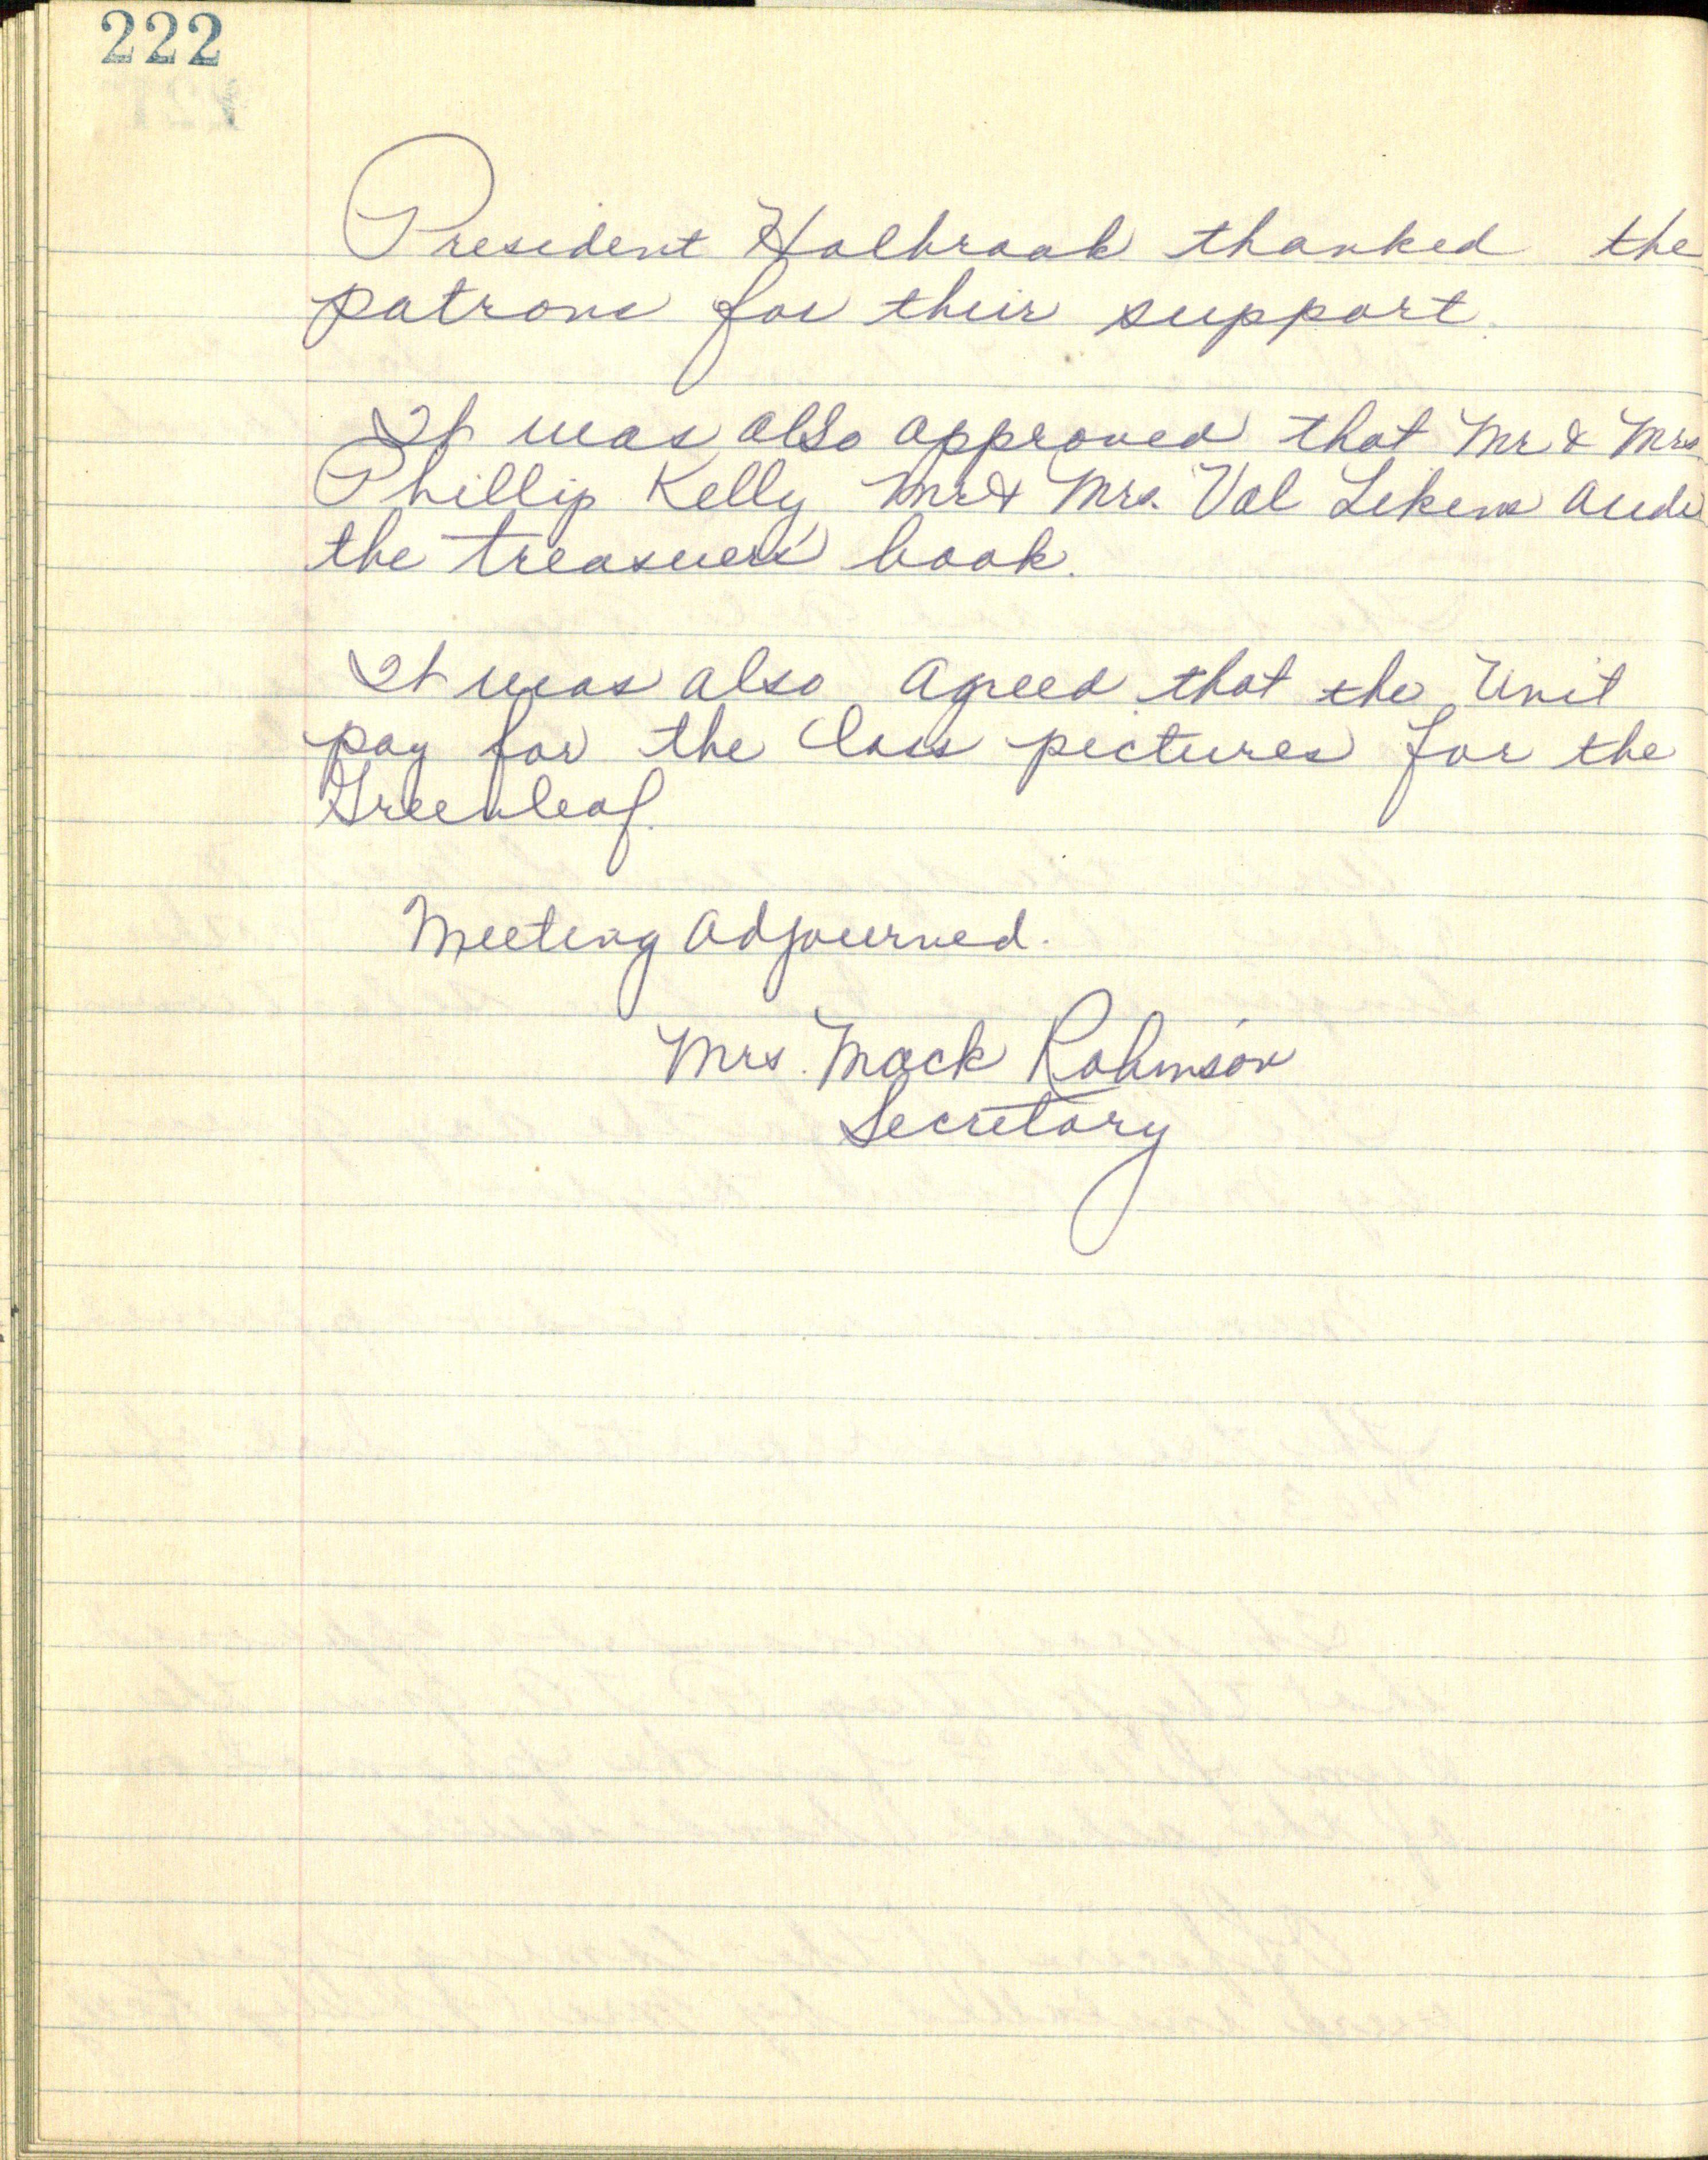 222
President Holbrook thanked the
patrons for their support.
It was also approved that Mr & Mrs.
Phillip Kelly Mr & Mrs. Val Likens Audi
the treasuers book.
It was also agreed that the Unit
pay for the Class pictures for the
Greenleaf.
Meeting adjourned.
Mrs. Mack Robinson
Secretary